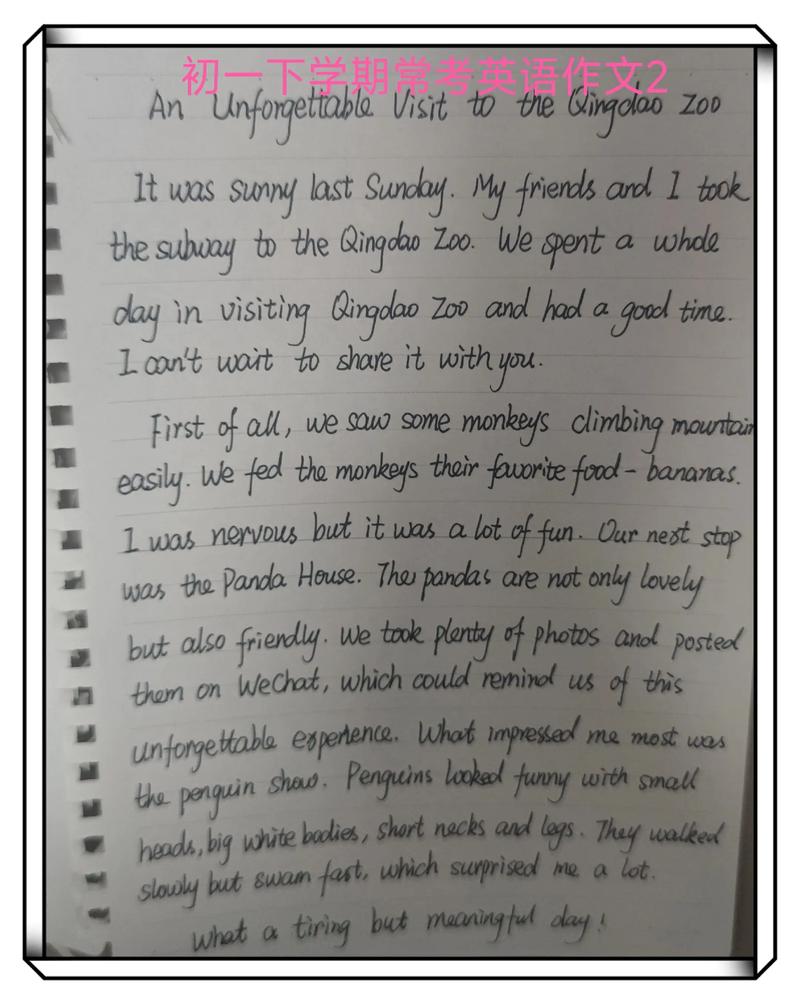 初一下学期常考英语作文2
An Unforgettable Visit to the Qingdao Zoo
It was sunny last Sunday. My friends and I took
the subway to the Qingdao Zoo. We spent a whole
day in visiting Qingdao Zoo and had a good time.
I can't wait to share it with you.
First of all, we saw some monkeys climbing mountain
easily. We fed the monkeys their favorite food - bananas.
I was nervous but it was a lot of fun. Our next stop
was the Panda House. The pandas are not only lovely
but also friendly. We took plenty of photos and posted
them on WeChat, which could remind us of this
unforgettable experience. What impressed me most was
the penguin show. Penguins looked funny with small
heads, big white bodies, short necks and legs. They walked
slowly but swam fast, which surprised me a lot.
What a tiring but meaningful day!